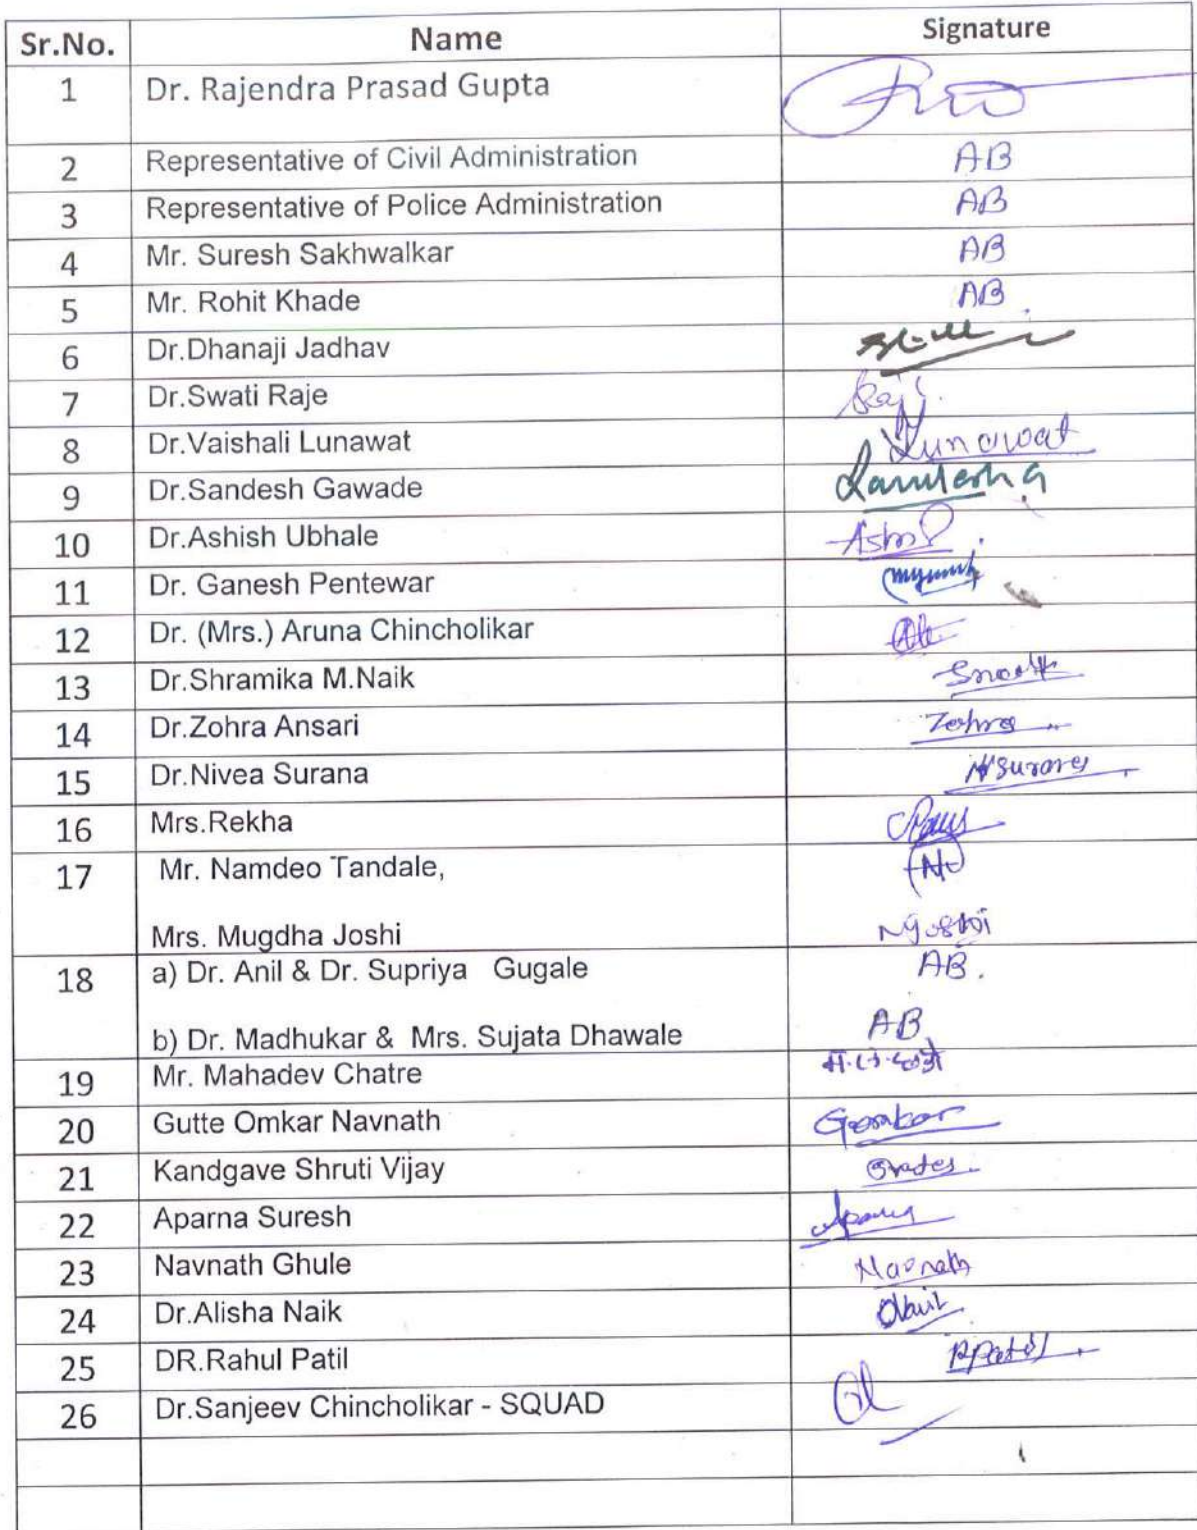 Sr.No. Name Signature
1 Dr. Rajendra Prasad Gupta
2 Representative of Civil Administration AB
3 Representative of Police Administration AB
4 Mr. Suresh Sakhwalkar AB
5 Mr. Rohit Khade AB
6 Dr.Dhanaji Jadhav
7 Dr.Swati Raje
8 Dr.Vaishali Lunawat Lunawat
9 Dr.Sandesh Gawade
10 Dr.Ashish Ubhale
11 Dr. Ganesh Pentewar
12 Dr. (Mrs.) Aruna Chincholikar
13 Dr.Shramika M.Naik
14 Dr.Zohra Ansari Zohra
15 Dr.Nivea Surana
16 Mrs.Rekha
17 Mr. Namdeo Tandale,
Mrs. Mugdha Joshi
18 a) Dr. Anil & Dr. Supriya Gugale AB.
b) Dr. Madhukar & Mrs. Sujata Dhawale AB
19 Mr. Mahadev Chatre
20 Gutte Omkar Navnath
21 Kandgave Shruti Vijay
22 Aparna Suresh
23 Navnath Ghule Navnath
24 Dr.Alisha Naik
25 DR.Rahul Patil
26 Dr.Sanjeev Chincholikar - SQUAD